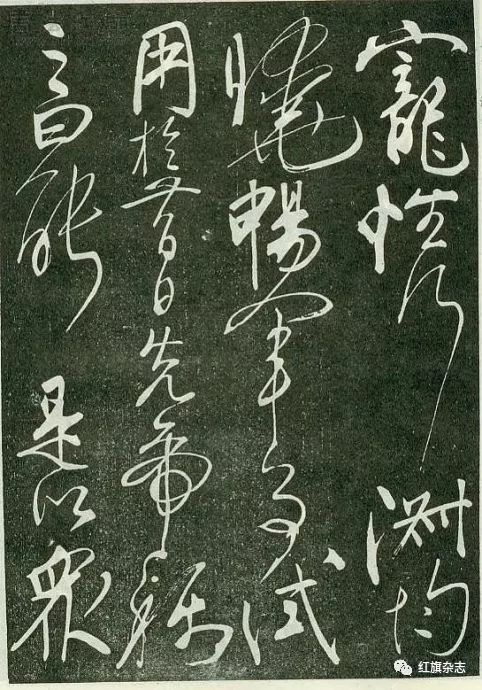 寵性行淑均
曉暢軍事試
用於昔日先帝稱
之曰能是以衆
红旗杂志